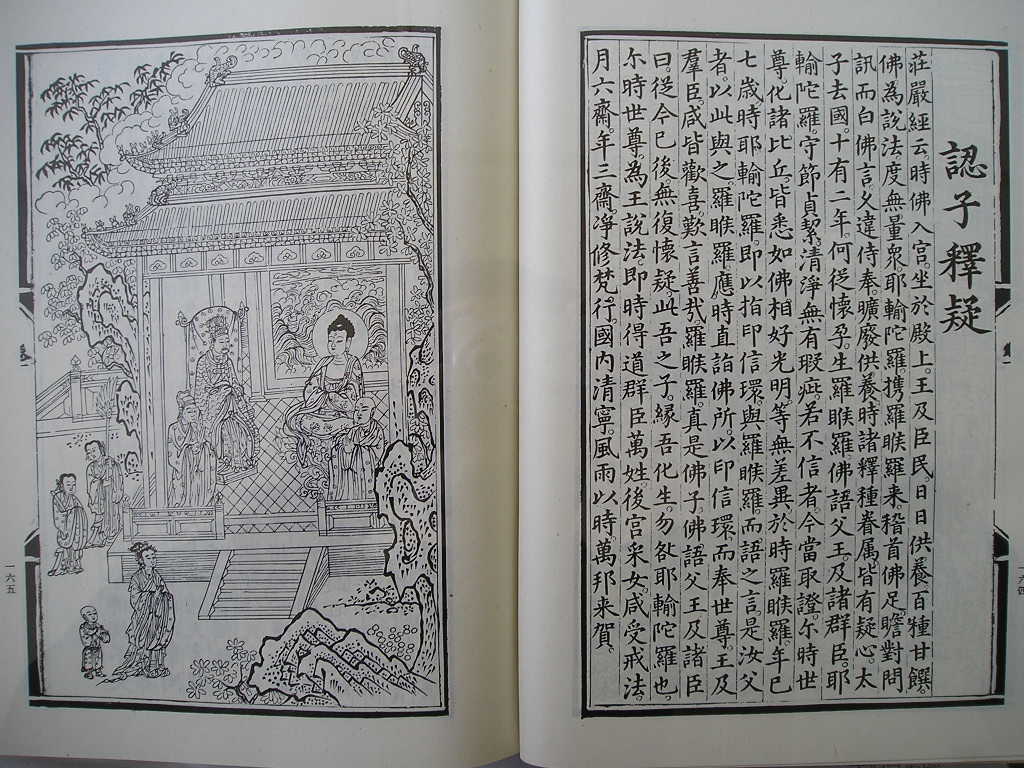 認子釋疑
莊嚴經云。時佛入宮。坐於殿上。王及臣民。日日供養百種甘饌。
佛為說法度無量衆。耶輸陀羅。攜羅睺羅來。稽首佛足。瞻對問
訊而白佛言。久違侍奉。曠廢供養。時諸釋種眷屬。皆有疑心。太
子去國。十有二年。何從懷孕。生羅睺羅。佛語父王。及諸群臣。耶
輸陀羅。守節貞潔。清淨無有瑕疵。若不信者。今當取證。尒時世
尊。化諸比丘。皆悉如佛。相好光明。等無差異。於時羅睺羅。年已
七歲時耶輸陀羅。即以指印信環。與羅睺羅。而語之言。是汝父
者。以此與之。羅睺羅應時直詣佛所。以印信環。而奉世尊。王及
羣臣。咸皆歡喜。歎言善哉。羅睺羅。真是佛子。佛語父王。及諸臣
曰。從今已後。無復懷疑。此吾之子。緣吾化生。勿咎耶輸陀羅也。
尒時世尊。為王說法。即時得道。群臣萬姓。後宮采女。咸受戒法。
月六齋。年三齋。淨修梵行。國內清寧。風雨以時。萬邦來賀。
一六五